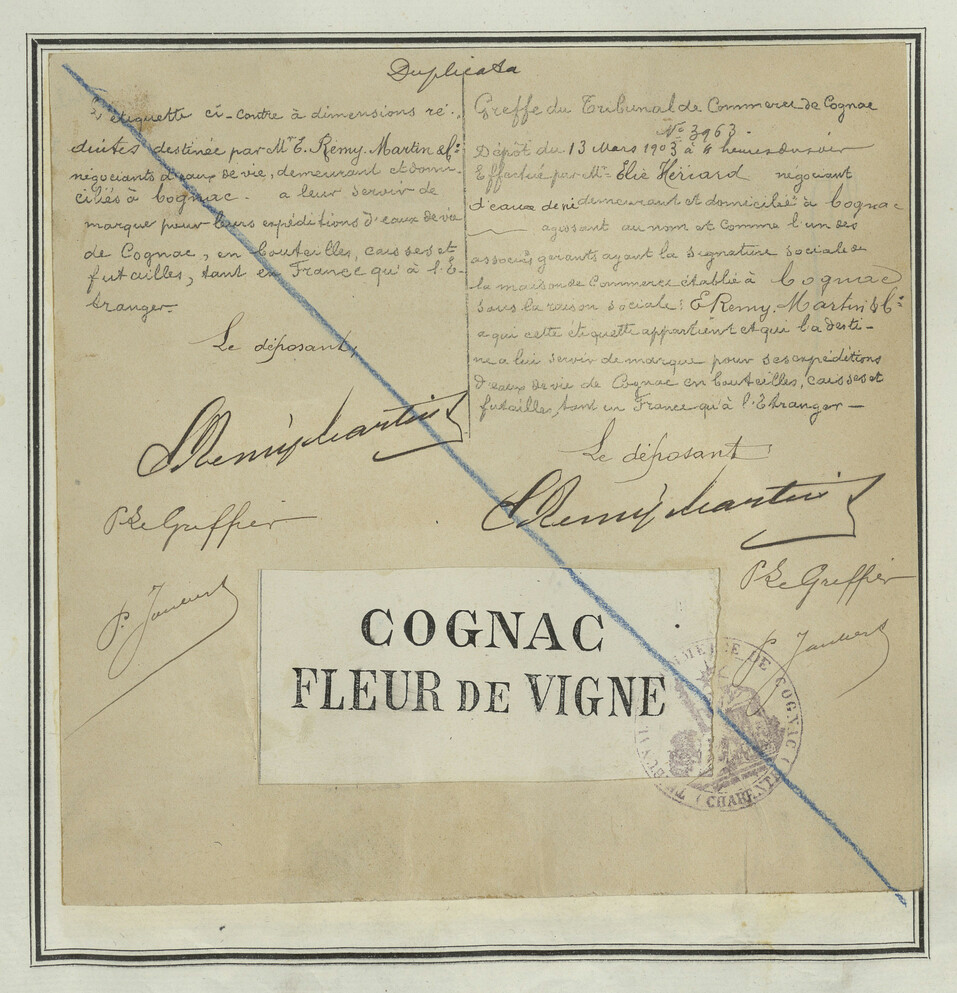 Duplicata
L'étiquette ci-contre à dimensions ré-
duites destinée par Mrs E. Remy Martin & Cie
négociants d'eaux de vie, demeurant et domi-
ciliés à Cognac - a leur servir de
marque pour leurs expéditions d'eaux de vie
de Cognac, en bouteilles, caisses et
futailles, tant en France qu'à l'E-
tranger
Le déposant,
E Remy Martin & Co
Pr Le Greffier
Greffe du Tribunal de Commerce de Cognac
No 3963.
Dépôt du 13 Mars 1903 à 4 heures du soir
Effectué par Mr Elie Hériard négociant
d'eaux de vie demeurant et domicilié à Cognac
agissant au nom et comme l'un des
associés gérants ayant la signature sociale de
la maison de Commerce établie à Cognac
sous la raison sociale: E. Remy Martin & Cie
a qui cette étiquette appartient et qui la desti-
ne a lui servir de marque pour ses expéditions
d'eaux de vie de Cognac en bouteilles, caisses et
futailles, tant en France qu'à l'Etranger
Le déposant
E Remy Martin & Co
Pr Le Greffier
COGNAC
FLEUR DE VIGNE
TRIBUNAL DE COMMERCE DE COGNAC
(CHARENTE)